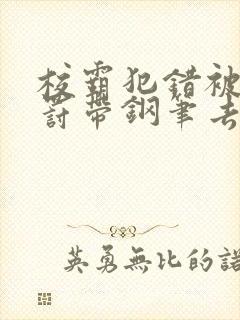 校霸犯錯被
討帶鋼筆去
英勇無比的諾